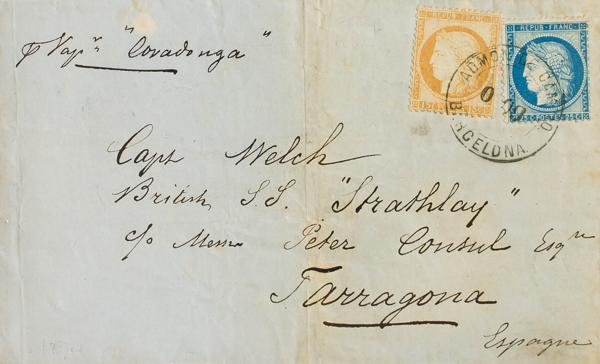 p Vapr "Covadonga"
REPUB · FRANC ·
15 C · POSTES · 15 C
REPUB · FRANC ·
25 C · POSTES · 25 C
BARCELONA
Capt Welch
British S.S. "Strathlay"
c/o Messrs Peter Consul Esqre
Tarragona
Espagne